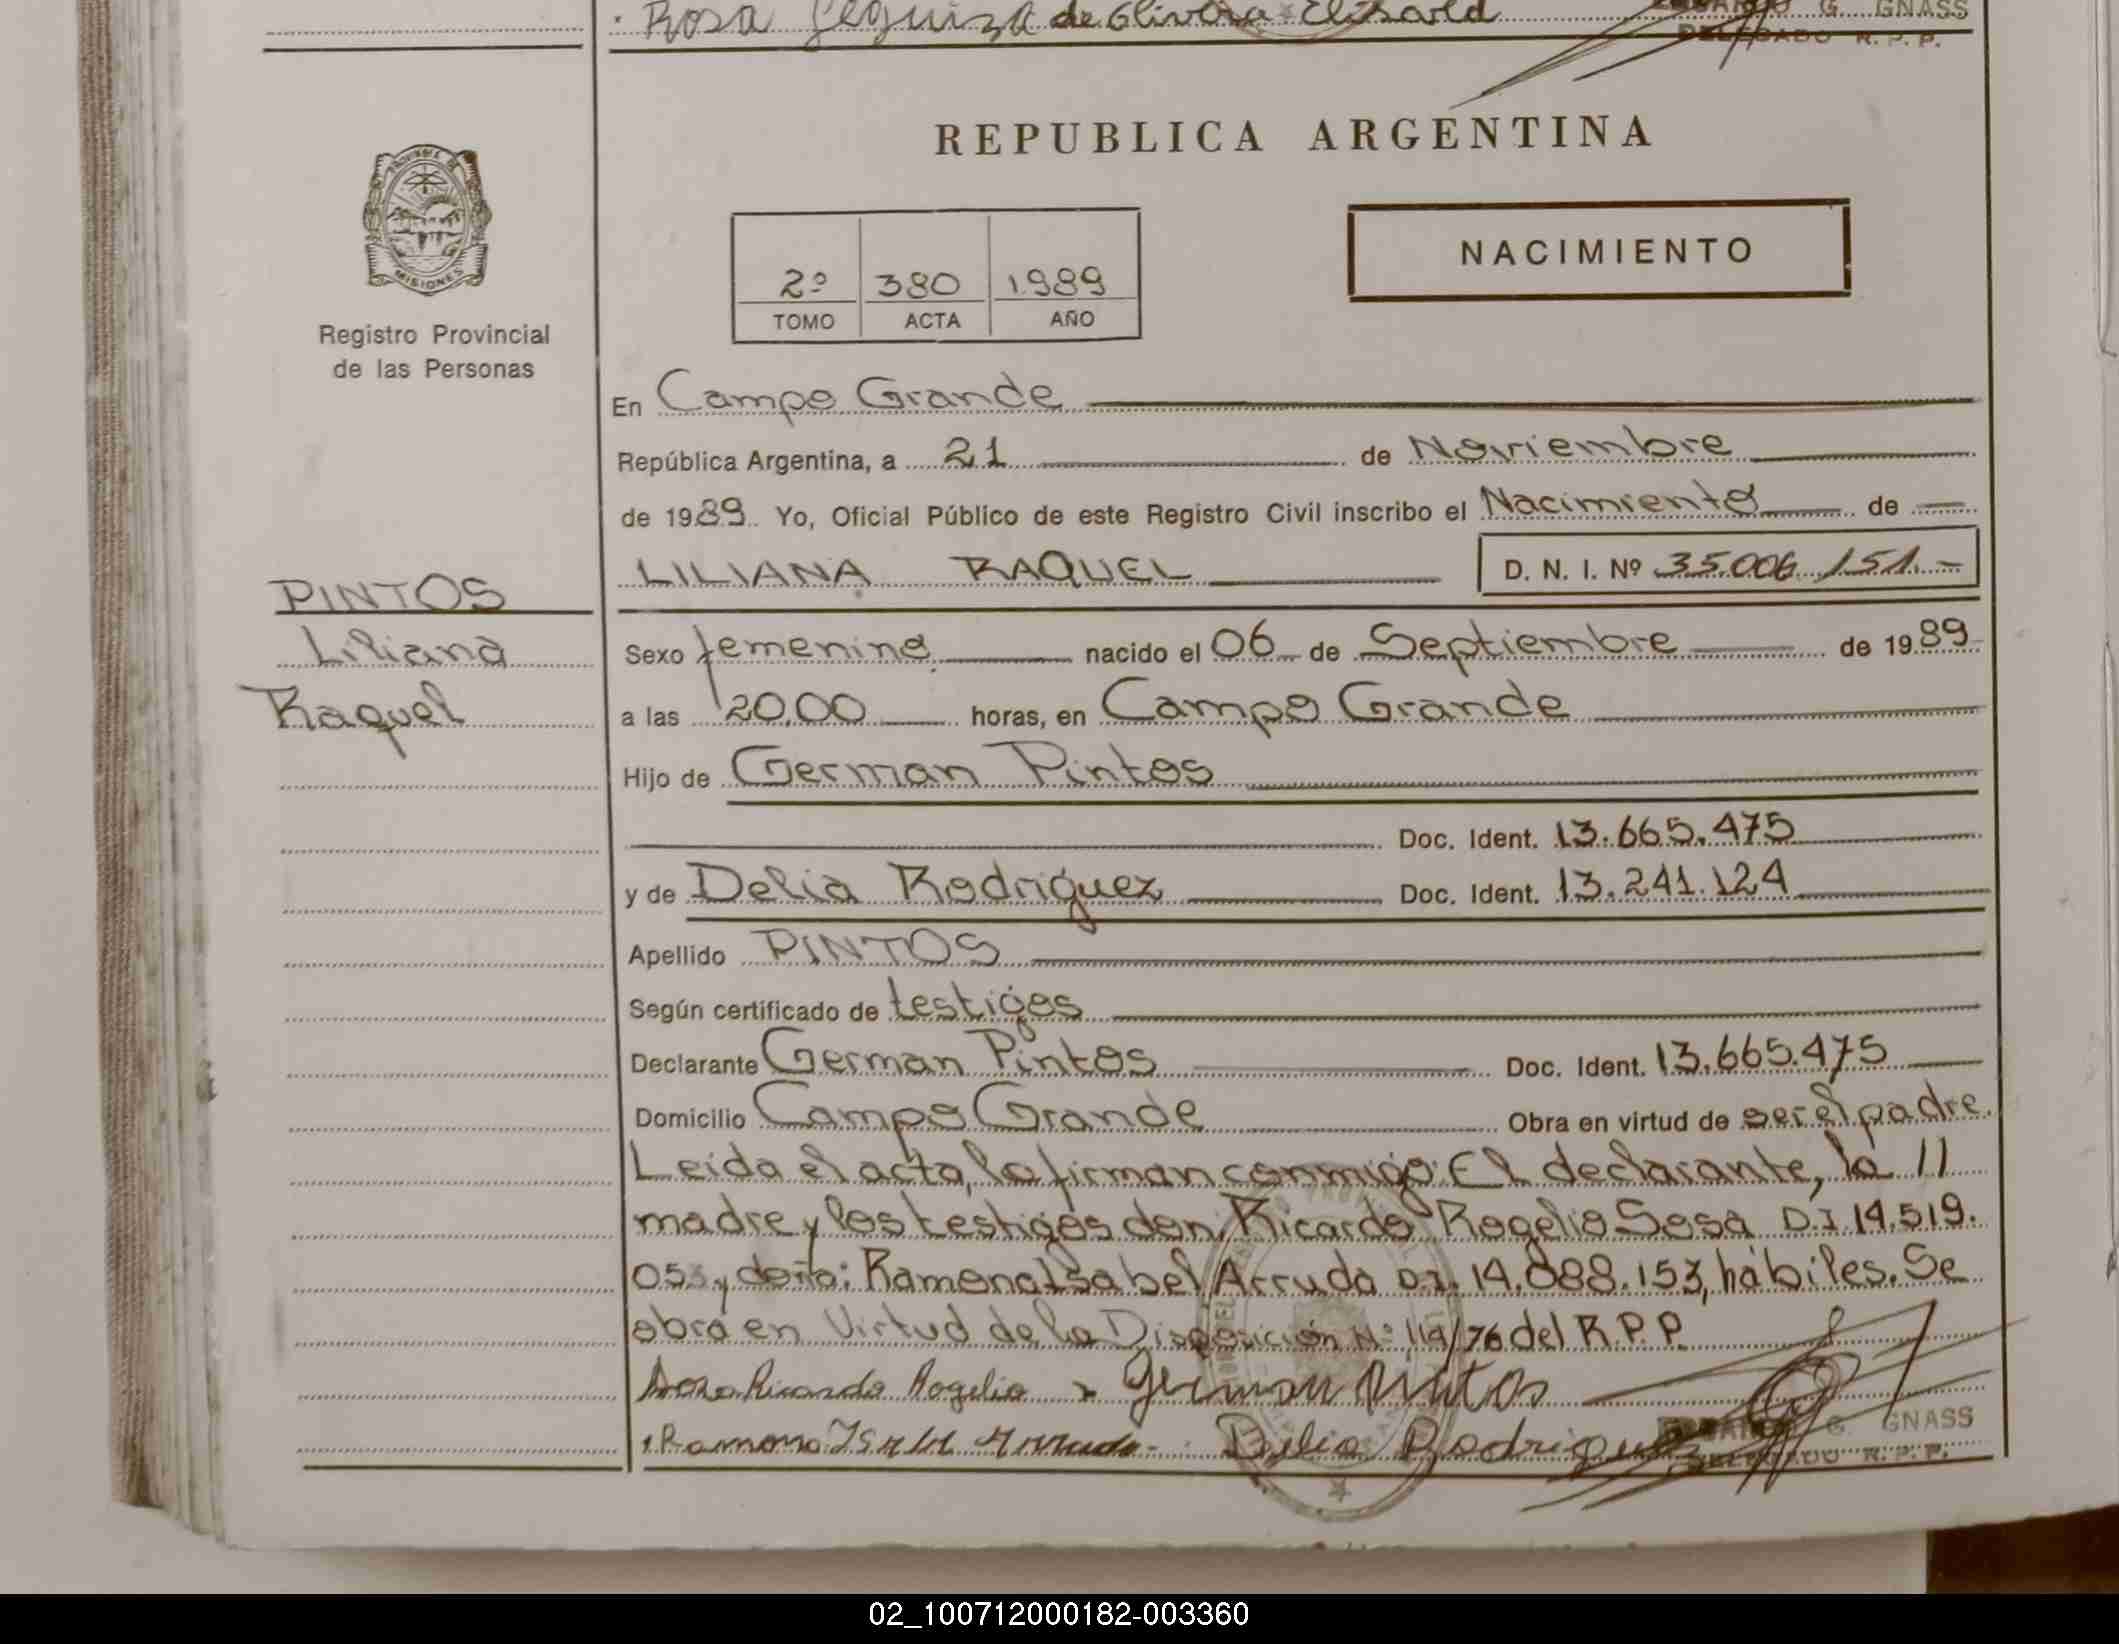 Rosa de Olivera
G. GNASS
DELEGADO R. P. P.
PROVINCIA DE
MISIONES
Registro Provincial
de las Personas
REPUBLICA ARGENTINA
2º 380 1989
TOMO ACTA AÑO
NACIMIENTO
En Campo Grande
República Argentina, a 21 de Noviembre
de 1989. Yo, Oficial Público de este Registro Civil inscribo el Nacimiento de
LILIANA RAQUEL D. N. I. Nº 35.006.151.-
PINTOS
Liliana
Raquel
Sexo femenino nacido el 06 de Septiembre de 1989
a las 20,00 horas, en Campo Grande
Hijo de German Pintos
Doc. Ident. 13.665.475
y de Delia Rodriguez Doc. Ident. 13.241.124
Apellido PINTOS
Según certificado de testigos
Declarante German Pintos Doc. Ident. 13.665.475
Domicilio Campo Grande Obra en virtud de ser el padre.
Leida el acta, la firman conmigo: El declarante, la //
madre y los testigos don: Ricardo Rogelio Sosa D.I. 14.519.
y doña: Ramona Isabel Arruda D.I. 14.088.153, hábiles. Se
obra en Virtud de la Disposición Nº 114/76 del R.P.P.
Sosa Ricardo Rogelio German Pintos
Ramona Isabel Arruda - Delia Rodriguez
G. GNASS
DELEGADO R. P. P.
02_100712000182-003360